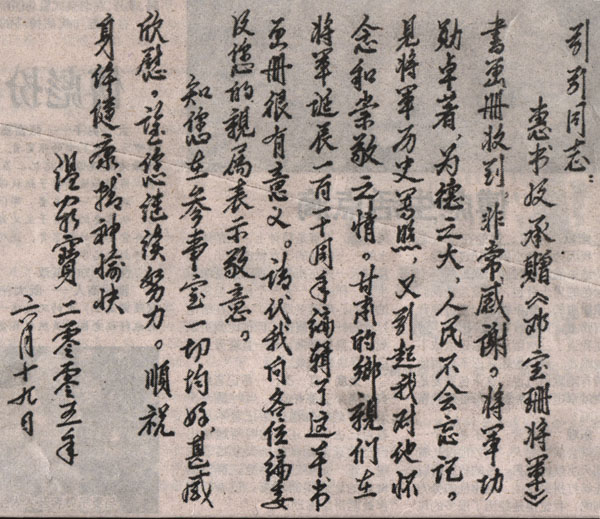 引引同志：
惠书及承贈《邓宝珊将军》
书画册收到，非常感谢。将军功
勋卓著，为德之大，人民不会忘记。
見将军历史写照，又引起我对他怀
念和崇敬之情。甘肃的鄉親们在
将军诞辰一百一十周年编辑了这本书
画册很有意义。请代我向各位编委
及您的親属表示敬意。
知您在参事室一切均好，甚感
欣慰。望您继续努力。順祝
身体健康精神愉快
温家寶 二零零五年
六月十九日